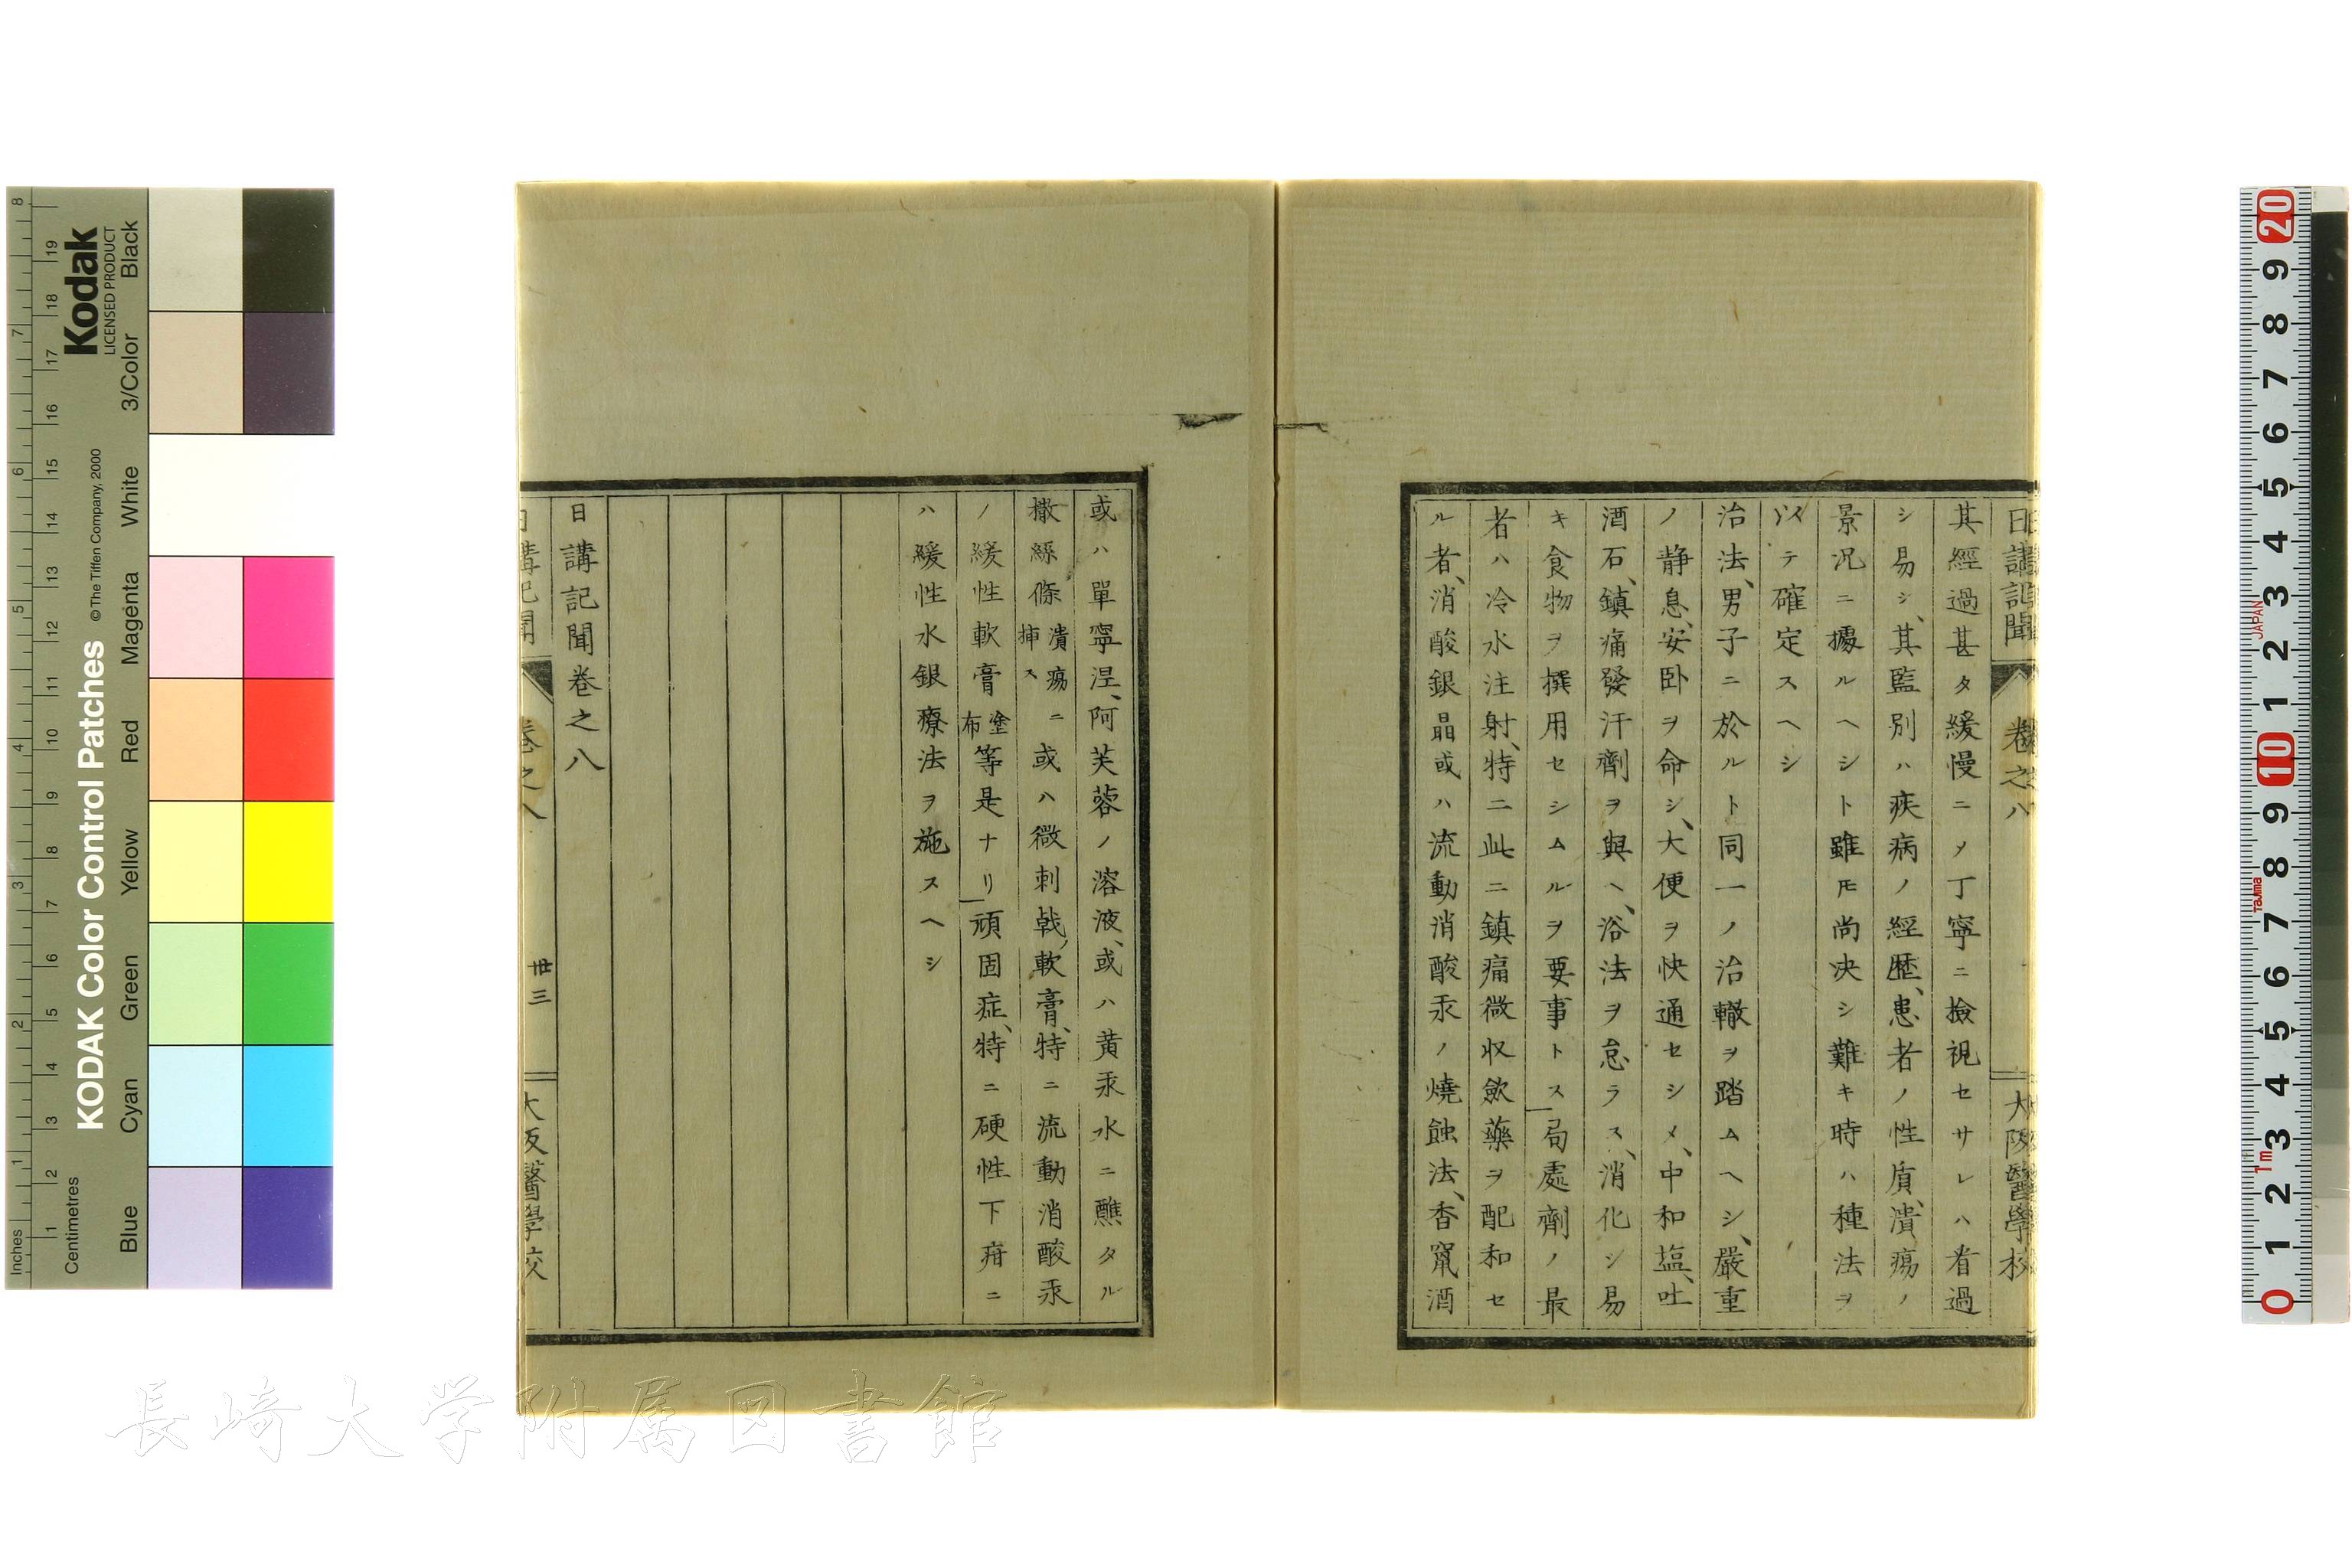 日講記聞 卷之八 大阪醫學校
其經過甚タ緩慢ニメ丁寧ニ撿視セサレハ看過
シ易シ、其監別ハ疾病ノ經歴、患者ノ性質、潰瘍ノ
景況ニ據ルヘシト雖𪜈尚决シ難キ時ハ種法ヲ
以テ確定スヘシ
治法、男子ニ於ルト同一ノ治轍ヲ踏ムヘシ、嚴重
ノ静息、安卧ヲ命シ、大便ヲ快通セシメ、中和塩、吐
酒石、鎮痛發汗劑ヲ與ヘ、浴法ヲ怠ラス、消化シ易
キ食物ヲ撰用セシムルヲ要事トス局處劑ノ最
者ハ冷水注射、特ニ此ニ鎮痛微収歛藥ヲ配和セ
ル者、消酸銀晶或ハ流動消酸汞ノ燒蝕法、香竄酒
或ハ單寧涅、阿芙蓉ノ溶液、或ハ黄汞水ニ蘸タル
撒綿條潰瘍ニ挿ス或ハ微刺戟軟膏、特ニ流動消酸汞
ノ緩性軟膏塗布等是ナリ頑固症、特ニ硬性下疳ニ
ハ緩性水銀療法ヲ施スヘシ
日講記聞卷之八
日講記聞 卷之八 丗三 大阪醫學校
長崎大学附属図書館
Kodak
LICENSED PRODUCT
KODAK Color Control Patches
© The Tiffen Company, 2000
Inches
Centimetres
Blue
Cyan
Green
Yellow
Red
Magenta
White
3/Color
Black
1 2 3 4 5 6 7 8
1 2 3 4 5 6 7 8 9 10 11 12 13 14 15 16 17 18 19
20 9 8 7 6 5 4 3 2 1 10 9 8 7 6 5 4 3 2 1 0
JAPAN
Tajima
1m